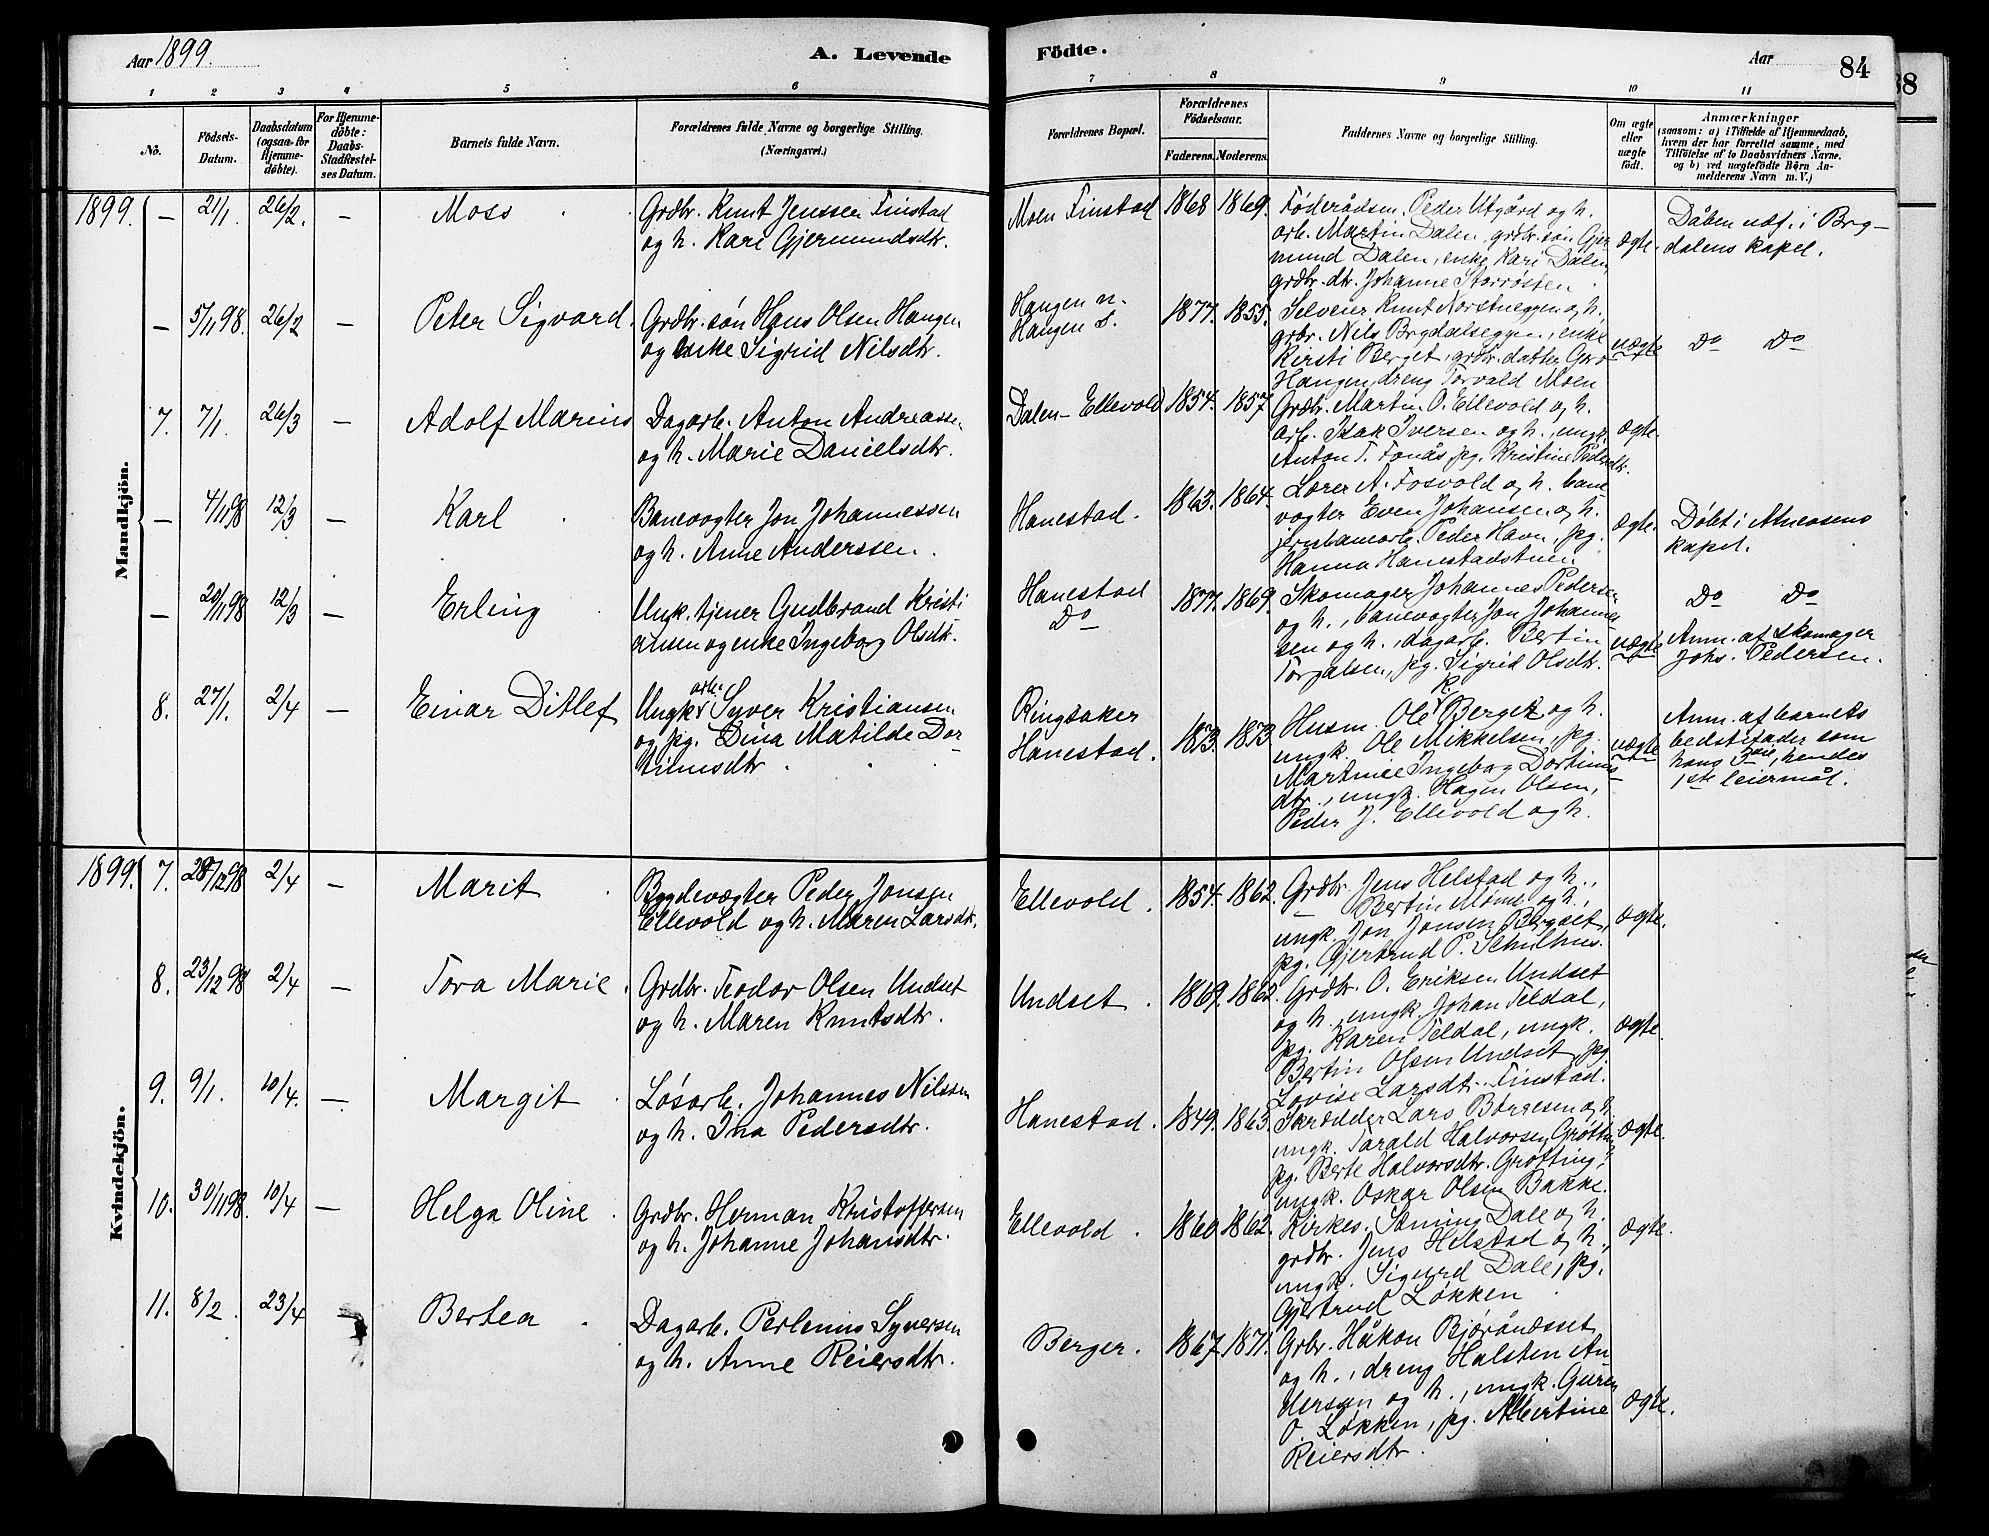 Aar 1899.
A. Levende
Födte.
Aar
84
1
2
3
4
5
6
7
8
9
10
11
No.
Födsels-
Datum.
Daabsdatum
(ogsaa for
Hjemme-
døbte).
For Hjemme-
døbte:
Daabs-
Stadfæstel-
ses Datum.
Barnets fulde Navn.
Forældrenes fulde Navne og borgerlige Stilling.
(Næringsvei.)
Forældrenes Bopæl.
Forældrenes
Födselsaar.
Faderens.
Moderens.
Faddernes Navne og borgerlige Stilling.
Om ægte
eller
uægte
födt.
Anmærkninger
(saasom: a) i Tilfælde af Hjemmedaab,
hvem der har forrettet samme, med
Tilføielse af to Daabsvidners Navne.
og b) ved uægtefödte Börn An-
melderens Navn m. V.)
Mandkjön.
1899. – 21/1. 26/2. – Moss
Grdbr. Knut Jenssen Finstad
og h. Kari Gjermundsdtr.
Moen Finstad 1868 1869.
Føderådsm. Peder Utgård og h.
arb. Martin Dalen, grdbr. søn Gjer
mund Dalen, enke Kari Dalen,
grdbr. dtr. Johanne Storrøsten
ægte.
Dåben udf. i Brg-
dalens kapel.
– 5/11 98. 26/2 – Peter Sigvard.
Grdbr. søn Hans Olsen Hangen
og enke Sigrid Nilsdtr.
Hangen n.
Hangen s.
1877. 1855.
Selveier Knut Norstueggen og h.
grbr. Nils Brgdalseggen, enke
Kirsti Berget, grdbr. datter Guro
Hangen, dreng Torvald Moen
uægte
Do Do
7. 7/1. 26/3 – Adolf Marius
Dagarb. Anton Andreassen
og h. Marie Danielsdtr.
Dalen – Ellevold 1854. 1857
Grdbr. Martin O. Ellevold og h.
arb. Isak Iversen og h., ungk.
Anton T. Fonås, pg. Kristine Pedersdtr.
ægte.
– 4/11 98 12/3 – Karl
Banevogter Jon Johannessen
og h. Anne Anderssen.
Hanestad. 1863. 1864.
Lærer A. Fosvold og h. bane
vogter Even Johansen og h.
jernbanearb. Peder Havn, pg.
Hanna Hanestadstuen.
ægte.
Døbt i Atneosens
kapel.
– 20/11 98 12/3 – Erling
Unk. tjener Gudbrand Kristi
ansen og enke Ingeborg Olsdtr.
Hanestad
Do
1877. 1869.
Skomager Johannes Pedersen
og h., banevogter Jon Johannes
sen og h., dagarb. Bertin
Torgalsen, pg. Sigrid Olsdtr.
uægte
Do Do
Anm. af skomager
Johs. Pedersen.
8. 27/1. 2/4 – Einar Ditlef
Ungk. arb. Syver Kristiansen
og pg. Dina Matilde Dor
tinusdtr
Ringsaker
Hanestad.
1873. 1873
Husm. Ole K. Berget og h.
ungk. Ole Mikkelsen, pg.
Martinee Ingeborg Dortinus
dtr., ungk. Hagen Olsen,
Peder J. Ellevold og h.
uægte
Anm. af barnets
bedstefader som
hans 3die, hendes
1ste leiermål.
Kvindekjön.
1899. 7. 28/12 98 2/4 – Marit
Bygdevægter Peder Jonsen
Ellevold og h. Maren Larsdtr.
Ellevold. 1854. 1862.
Grdbr. Jens Helstad og h.,
– Bertin Momb og h.,
ungk. Jon Jonsen Berget,
pg. Gjertrud P. Schulhus.
ægte.
8. 23/12 98 2/4 – Tora Marie.
Grdbr. Teodor Olsen Undset
og h. Maren Knutsdtr.
Undset. 1869. 1862.
Grdbr. O. Eriksen Undset
og h., ungk. Johan Teldal,
pg. Karen Teldal, ungk.
Bertin Olsen Undset, pg.
Lovise Larsdtr. Finstad.
ægte
9. 9/1. 10/4. – Margit
Løsarb. Johannes Nilssen
og h. Ina Pedersdtr.
Hanestad. 1849. 1863.
Skrædder Lars Børgesen og h.
ungk. Tarald Halvorsen Grøtting
pg. Berte Halvorsdtr. Grøtting,
ungk. Oskar Olsen Bakke.
ægte.
10. 30/11 98. 10/4 – Helga Oline
Grdbr. Herman Kristoffersen
og h. Johanne Johansdtr.
Ellevold. 1860 1862.
Kirkes. Sæming Dale og h.
grdbr. Jens Helstad og h.,
ungk. Sigurd Dale, pg.
Gjertrud Løkken
ægte.
11. 8/2. 23/4 Bertea
Dagarb. Perlenus Syversen
og h. Anne Reiersdtr.
Berger. 1867 1871.
Grbr. Håkon Bjøråndset
og h., dreng Halsten An
dersen og h., ungk. Guren
O. Løkken, pg. Albertine
Reiersdtr.
ægte.